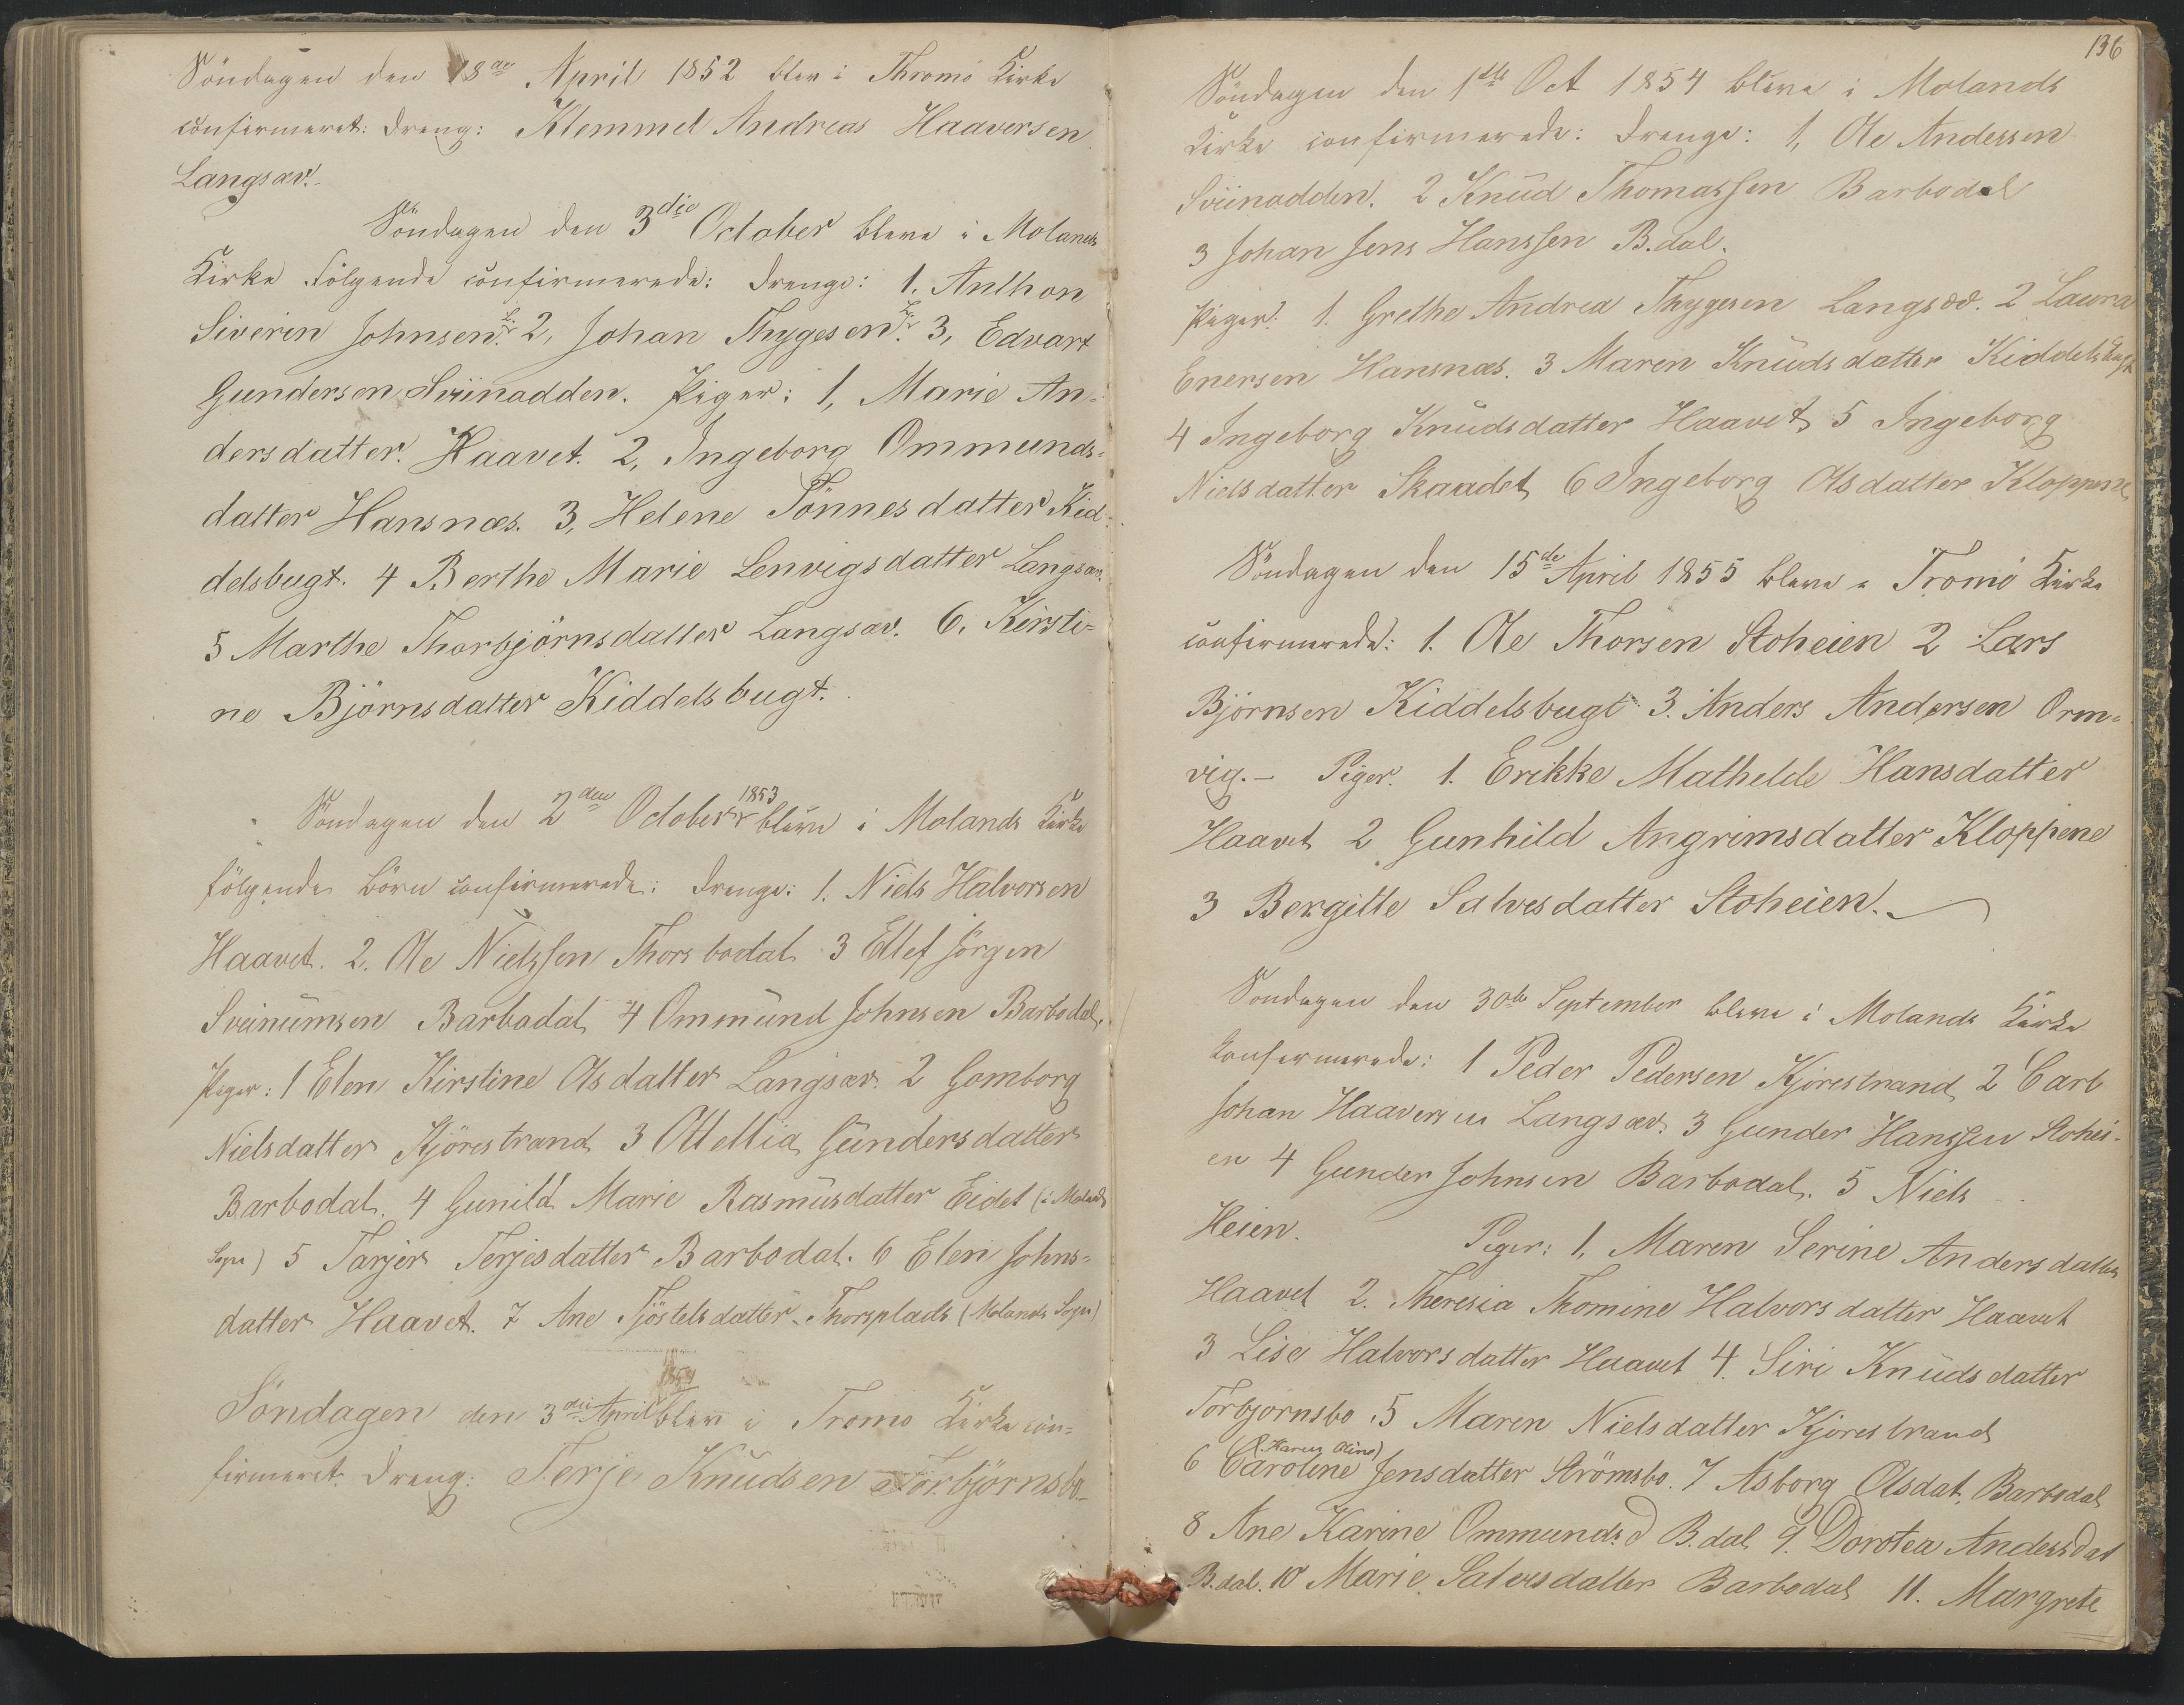 Söndagen den 18de April 1852 blev i Thromö Kirke
confirmeret: Dreng: Klemmet Andreas Haaversen
Langsæv.
Söndagen den 3die October bleve i Molands
Kirke Fölgende confirmerede: Drenge: 1. Anthon
Siverin Johnsen 2, Johan Thygesen 3, Edvart
Gundersen Sviinodden. Piger: 1, Marie An-
dersdatter. Haavet. 2, Ingeborg Ommunds-
datter Hansnæs. 3, Helene Tönnesdatter Kid-
delsbugt. 4 Berthe Marie Lenvigsdatter Langsæv.
5 Marthe Thorbjörnsdatter Langsæv. 6. Kirsti-
ne Björnsdatter Kiddelsbugt.
Söndagen den 2den October 1853 bleve i Molands Kirke
fölgende Börn confirmerede: Drenge: 1. Niels Halvorsen
Haavet. 2. Ole Nielssen Thorsbodal 3 Ellef Jörgen
Sveinumsen Barbodal 4 Ommund Johnsen Barbodal.
Piger: 1 Elen Kirstine Olsdatter Langsæv. 2 Gomborg
Nielsdatter Kjörestrand 3 Ottellia Gundersdatter
Barbodal. 4 Gunild Marie Rasmusdatter Eidet (i Molands
Sogn) 5 Tarjer Terjesdatter Barbodal. 6 Elen Johns-
datter Haavet. 7 Ane Tjöstelsdatter Thorsplads (Molands Sogn)
1854
Söndagen den 3die April blev i Tromö Kirke con-
firmeret Dreng: Terje Knudsen Torbjörnsbo
136
Söndagen den 1ste Oct 1854 bleve i Molands
Kirke confirmerede: Drenge: 1, Ole Andersen
Sviinodden. 2 Knud Thomassen Barbodal
3 Johan Jens Hanssen B.dal.
Piger: 1. Grethe Andrea Thygesen Langsæv. 2 Laura
Enersen Hansnæs. 3 Maren Knudsdatter Kiddelsbugt
4 Ingeborg Knudsdatter Haavet 5 Ingeborg
Nielsdatter Skaadet 6 Ingeborg Olsdatter Kloppene
Söndagen den 15de April 1855 bleve i Tromö Kirke
confirmerede: 1. Ole Thorsen Stoheien 2 Lars
Björnsen Kiddelsbugt 3. Anders Andersen Orm-
vig.- Piger. 1. Erikke Mathelde Hansdatter
Haavet 2 Gunhild Angrimsdatter Kloppene
3 Bergitte Salvesdatter Stoheien.
Söndagen den 30te September bleve i Molands Kirke
konfirmerede: 1 Peder Pedersen Kjörestrand 2 Carl
Johan Haaversen Langsæv. 3 Gunder Hanssen Stohei-
en 4 Gunder Johnsen Barbodal. 5 Niels
Heien. Piger: 1, Maren Serine Andersdatter
Haavet 2. Theresia Thomine Halvorsdatter Haavet
3 Lise Halvorsdatter Haavet 4. Siri Knudsdatter
Torbjornsbo 5 Maren Nielsdatter Kjorestrand
(Karen Oline)
6 Caroline Jensdatter Strömsbo. 7 Asborg Olsdat. Barbodal
8 Ane Karine Ommunds.d B.dal 9. Dorotea Andersdat
B.dal. 10 Marie Salvesdatter Barbodal 11. Margrete